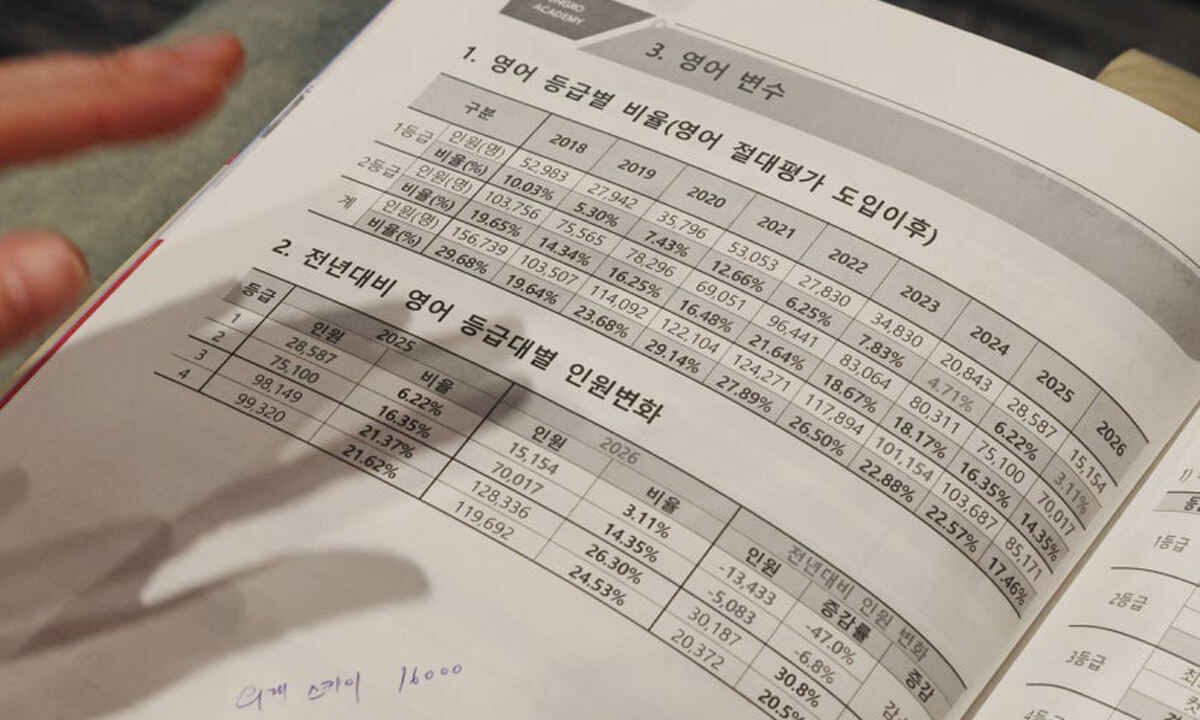 ACADEMY
3. 영어 변수
1. 영어 등급별 비율(영어 절대평가 도입이후)
구분 2018 2019 2020 2021 2022 2023 2024 2025 2026
1등급 인원(명) 52,983 27,942 35,796 53,053 27,830 34,830 20,843 28,587 15,154
비율(%) 10.03% 5.30% 7.43% 12.66% 6.25% 7.83% 4.71% 6.22% 3.11%
2등급 인원(명) 103,756 75,565 78,296 69,051 96,441 83,064 80,311 75,100 70,017
비율(%) 19.65% 14.34% 16.25% 16.48% 21.64% 18.67% 18.17% 16.35% 14.35%
계 인원(명) 156,739 103,507 114,092 122,104 124,271 117,894 101,154 103,687 85,171
비율(%) 29.68% 19.64% 23.68% 29.14% 27.89% 26.50% 22.88% 22.57% 17.46%
2. 전년대비 영어 등급대별 인원변화
등급 2025 2026 전년대비 인원 변화
인원 비율 인원 비율 인원 증감률 증감
1 28,587 6.22% 15,154 3.11% -13,433 -47.0%
2 75,100 16.35% 70,017 14.35% -5,083 -6.8%
3 98,149 21.37% 128,336 26.30% 30,187 30.8%
4 99,320 21.62% 119,692 24.53% 20,372 20.5%
스카이 16000
1등급
2등급
3등급